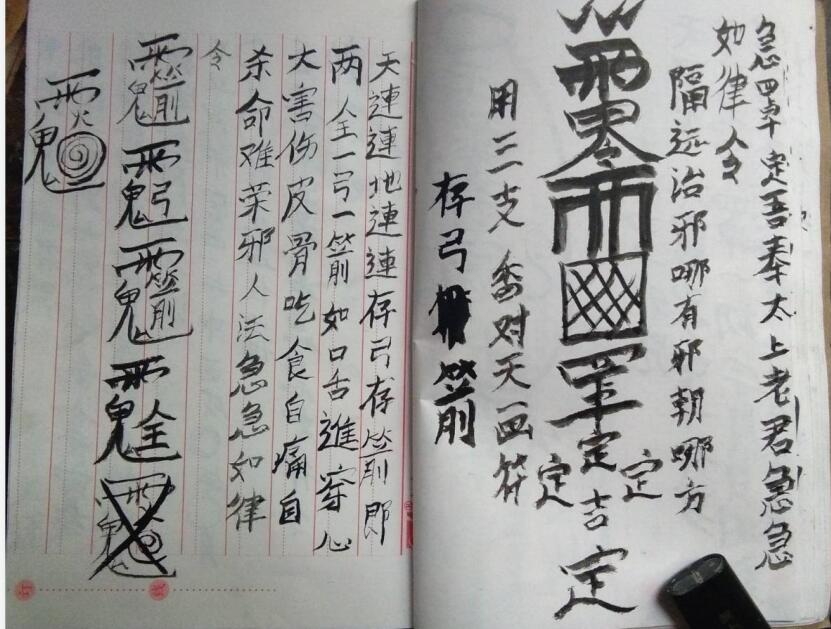 定吾奉太上老君急急
如律令
隔远治邪哪有邪朝哪方
定
定吉定
定
用三支香对天画符
存弓箭
天連連地連連存弓存箭即
两全一弓一箭如口舌進穿心
大害伤皮骨吃食自痛自
杀命难荣邪人法急急如律
令